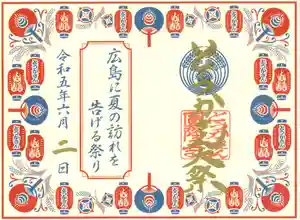 とうかさん大祭
広島に夏の訪れを
告げる祭り
令和五年六月二日